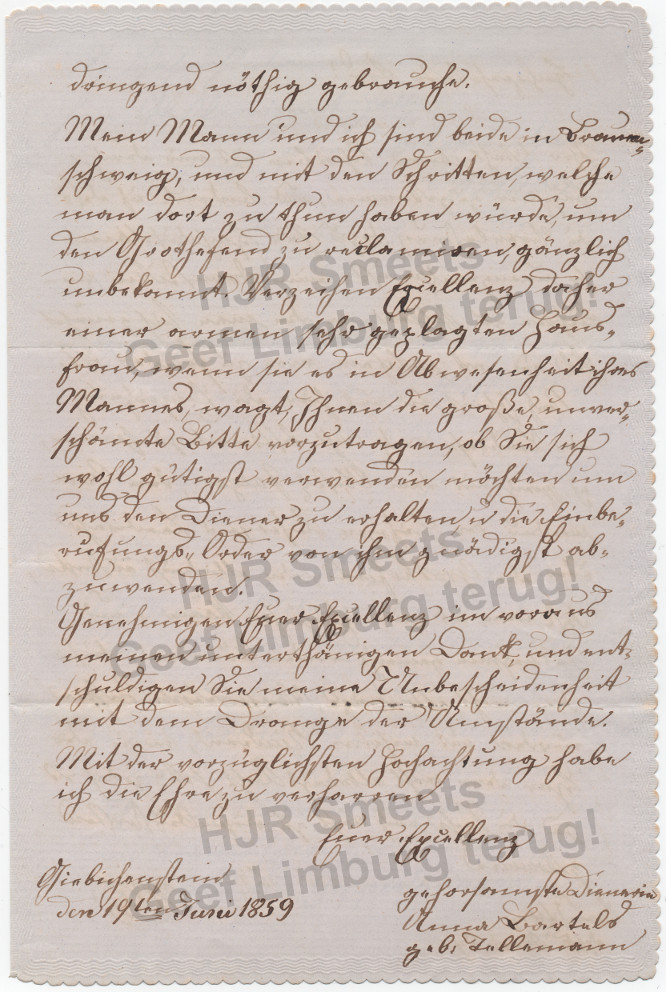 dringend nöthig gebrauche.
Mein Mann und ich sind beide in Braun-
schweig, und mit den Schritten, welche
man dort zu thun haben würde, um
den Grothefend zu reclamiren, gänzlich
unbekannt. Verzeihen Excellenz daher
einer armen sehr geplagten Haus-
frau, wenn sie es in Abwesenheit ihres
Mannes, wagt, Ihnen die große, unver-
schämte Bitte vorzutragen, ob Sie sich
wohl gütigst verwenden möchten um
uns den Diener zu erhalten u die Einbe-
rufungs-Order von ihm gnädigst ab-
zuwenden.
Genehmigen Euer Excellenz im voraus
meinen unterthänigen Dank, und ent-
schuldigen Sie meine Unbescheidenheit
mit dem Drange der Umstände.
Mit der vorzüglichsten Hochachtung habe
ich die Ehre zu verharren
Euer Excellenz
Giebichenstein
den 19ten Juni 1859
gehorsamste Dienerin
Anna Bartels
geb. Tellemann
HJR Smeets
Geef Limburg terug!
HJR Smeets
Geef Limburg terug!
HJR Smeets
Geef Limburg terug!